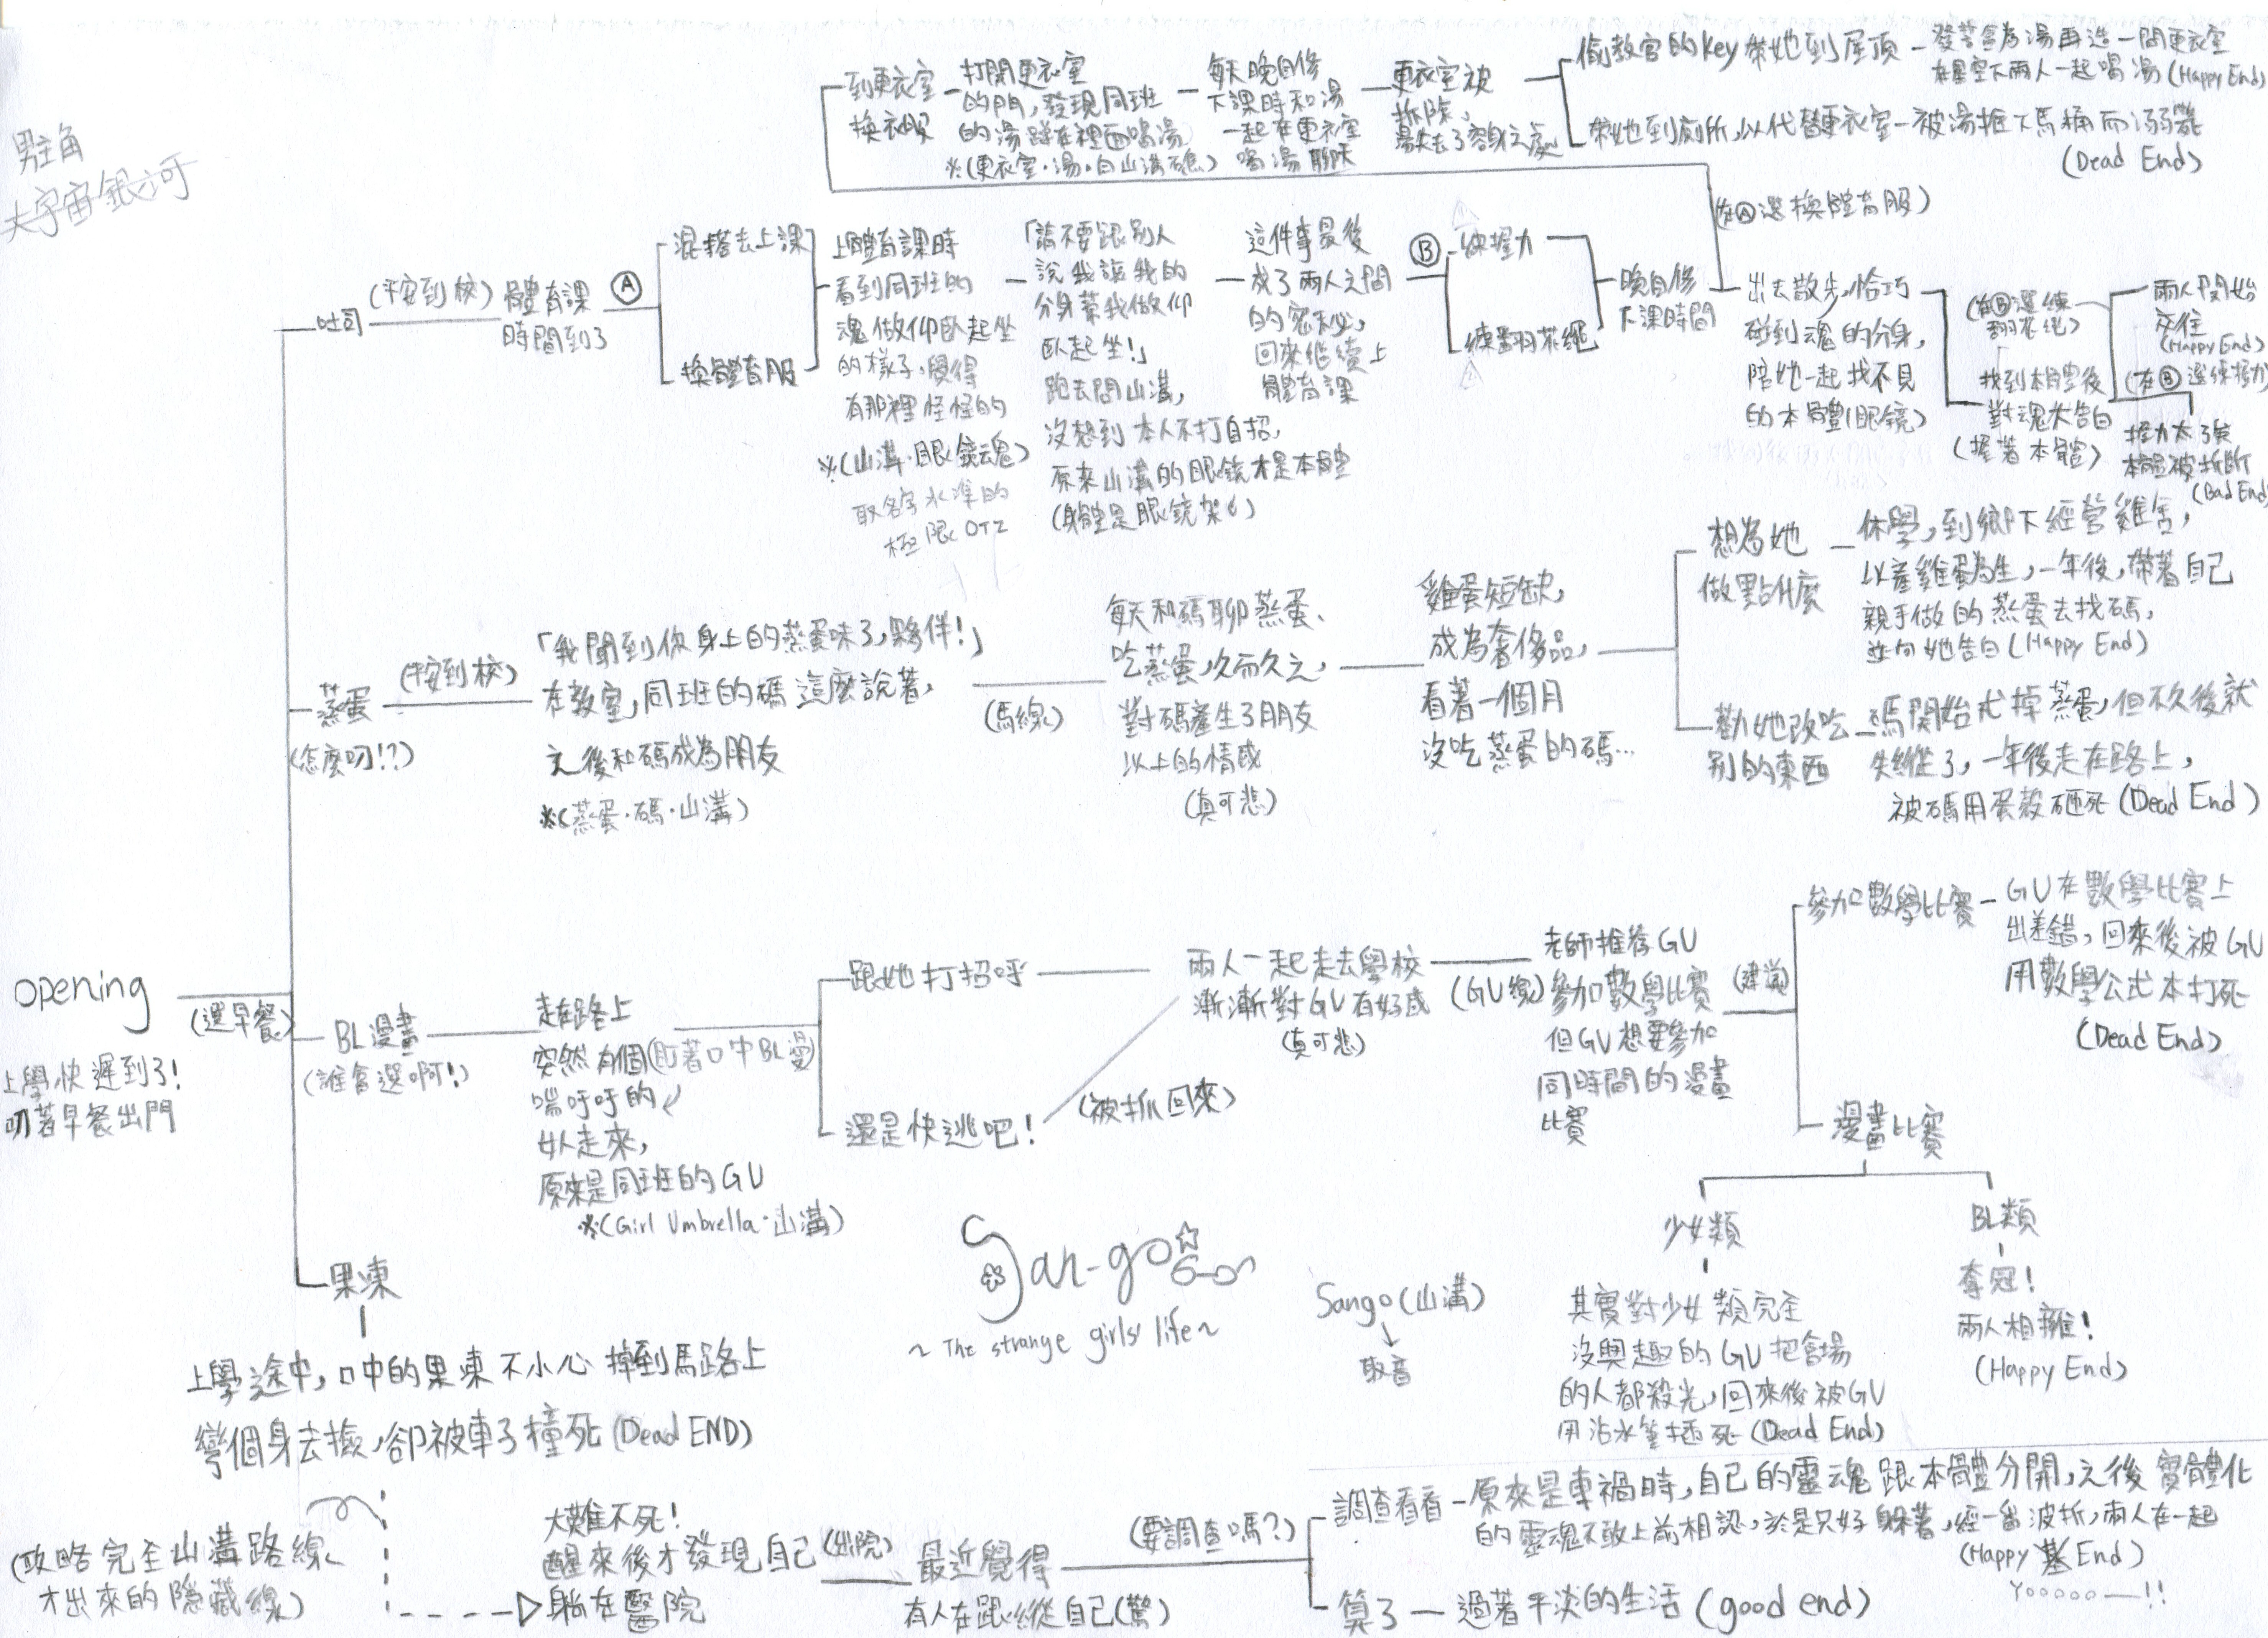 男主角
大宇宙銀河
到更衣室
換衣服
打開更衣室
的門,發現同班
的湯蹲在裡面喝湯
※(更衣室·湯·自山溝礁)
每天晚自修
下課時和湯
一起在更衣室
喝湯聊天
更衣室被
拆除、
湯失去了容身之處
偷教官的key帶她到屋頂
發誓會為湯再造一間更衣室
在星空下兩人一起喝湯(Happy End)
帶她到廁所,以代替更衣室
被湯推下馬桶而溺斃
(Dead End)
(在Ⓐ選換體育服)
吐司
(平安到校)
體育課
時間到了
Ⓐ
混搭去上課
換體育服
上體育課時
看到同班的
魂做仰臥起坐
的樣子,覺得
有那裡怪怪的
※(山溝·眼鏡魂)
取名字水準的
極限OTZ
「請不要跟別人
說我讓我的
分身幫我做仰
臥起坐!」
跑去問山溝,
沒想到本人不打自招,
原來山溝的眼鏡才是本體
(身體是眼鏡架)
這件事最後
成了兩人之間
的密秘,
回來繼續上
體育課
Ⓑ
練握力
練翻花繩
晚自修
下課時間
出去散步,恰巧
碰到魂的分身,
陪她一起找不見
的本體(眼鏡)
(在Ⓑ選練
翻花繩)
找到本體後
對魂大告白
(握著本體)
兩人開始
交往
(Happy End)
(在Ⓑ選練握力)
握力太強
本體被折斷
(Bad End)
蒸蛋
(怎麼叼!?)
(平安到校)
「我聞到你身上的蒸蛋味了,夥伴!」
在教室,同班的碼這麼說著,
之後和碼成為朋友
※(蒸蛋·碼·山溝)
(碼線)
每天和碼聊蒸蛋、
吃蒸蛋,久而久之,
對碼產生了朋友
以上的情感
(真可悲)
雞蛋短缺,
成為奢侈品,
看著一個月
沒吃蒸蛋的碼…
想為她
做點什麼
休學,到鄉下經營雞舍,
以產雞蛋為生,一年後,帶著自己
親手做的蒸蛋去找碼,
並向她告白(Happy End)
勸她改吃
別的東西
碼開始戒掉蒸蛋,但不久後就
失蹤了,一年後走在路上,
被碼用蛋殼砸死(Dead End)
opening
上學快遲到了!
叼著早餐出門
(選早餐)
BL漫畫
(誰會選啊!)
走在路上
突然有個(盯著口中BL漫)
喘吁吁的
女人走來,
原來是同班的GU
※(Girl Umbrella·山溝)
跟她打招呼
還是快逃吧!
(被抓回來)
兩人一起走去學校
漸漸對GU有好感
(真可悲)
(GU線)
老師推荐GU
參加數學比賽
但GU想要參加
同時間的漫畫
比賽
(建議)
參加數學比賽
GU在數學比賽上
出差錯,回來後被GU
用數學公式本打死
(Dead End)
漫畫比賽
少女類
其實對少女類完全
沒興趣的GU把會場
的人都殺光,回來後被GU
用沾水筆插死(Dead End)
BL類
奪冠!
兩人相擁!
(Happy End)
San-go
~The strange girls' life~
Sango(山溝)
取音
果凍
上學途中,口中的果凍不小心掉到馬路上
彎個身去撿,卻被車子撞死(Dead END)
(攻略完全山溝路線
才出來的隱藏線)
大難不死!
醒來後才發現自己
躺在醫院
(出院)
最近覺得
有人在跟縱自己(驚)
(要調查嗎?)
調查看看
原來是車禍時,自己的靈魂跟本體分開,之後實體化
的靈魂不敢上前相認,於是只好躲著,經一番波折,兩人在一起
(Happy 基 End)
Yooooo—!!
算了
過著平淡的生活(good end)